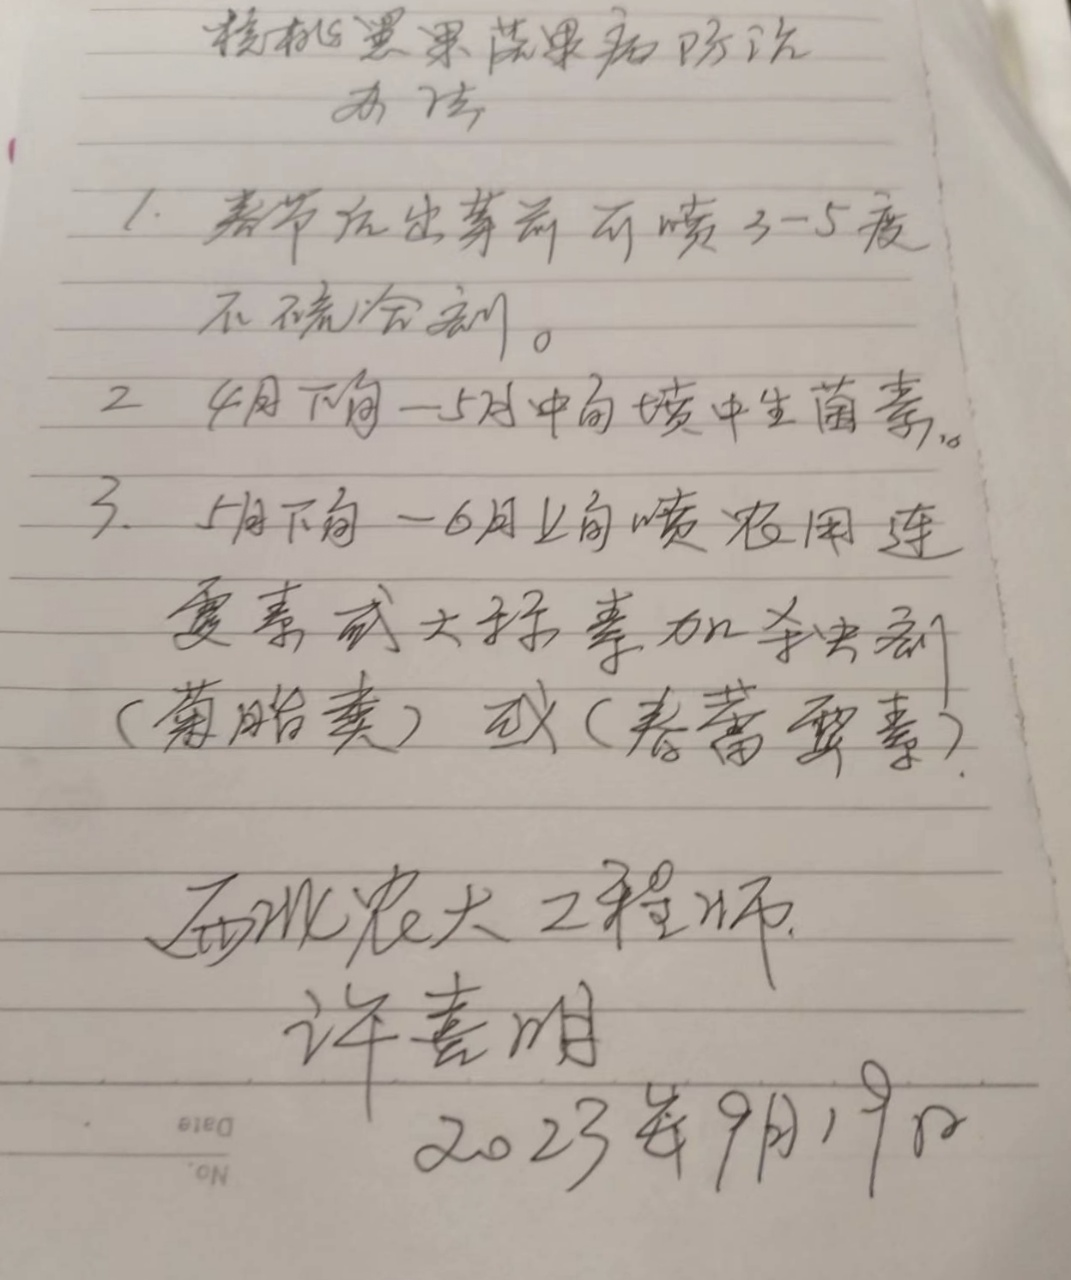 核桃黑果落果病防治
办法
1. 春节后出芽前可喷3-5度
石硫合剂。
2 4月下旬-5月中旬喷中生菌素。
3. 5月下旬-6月上旬喷农用连
霉素或大环素加杀虫剂
(菊脂类)或(春蕾霉素).
西北农大工程师.
许喜明
2023年9月19日
Date
No.